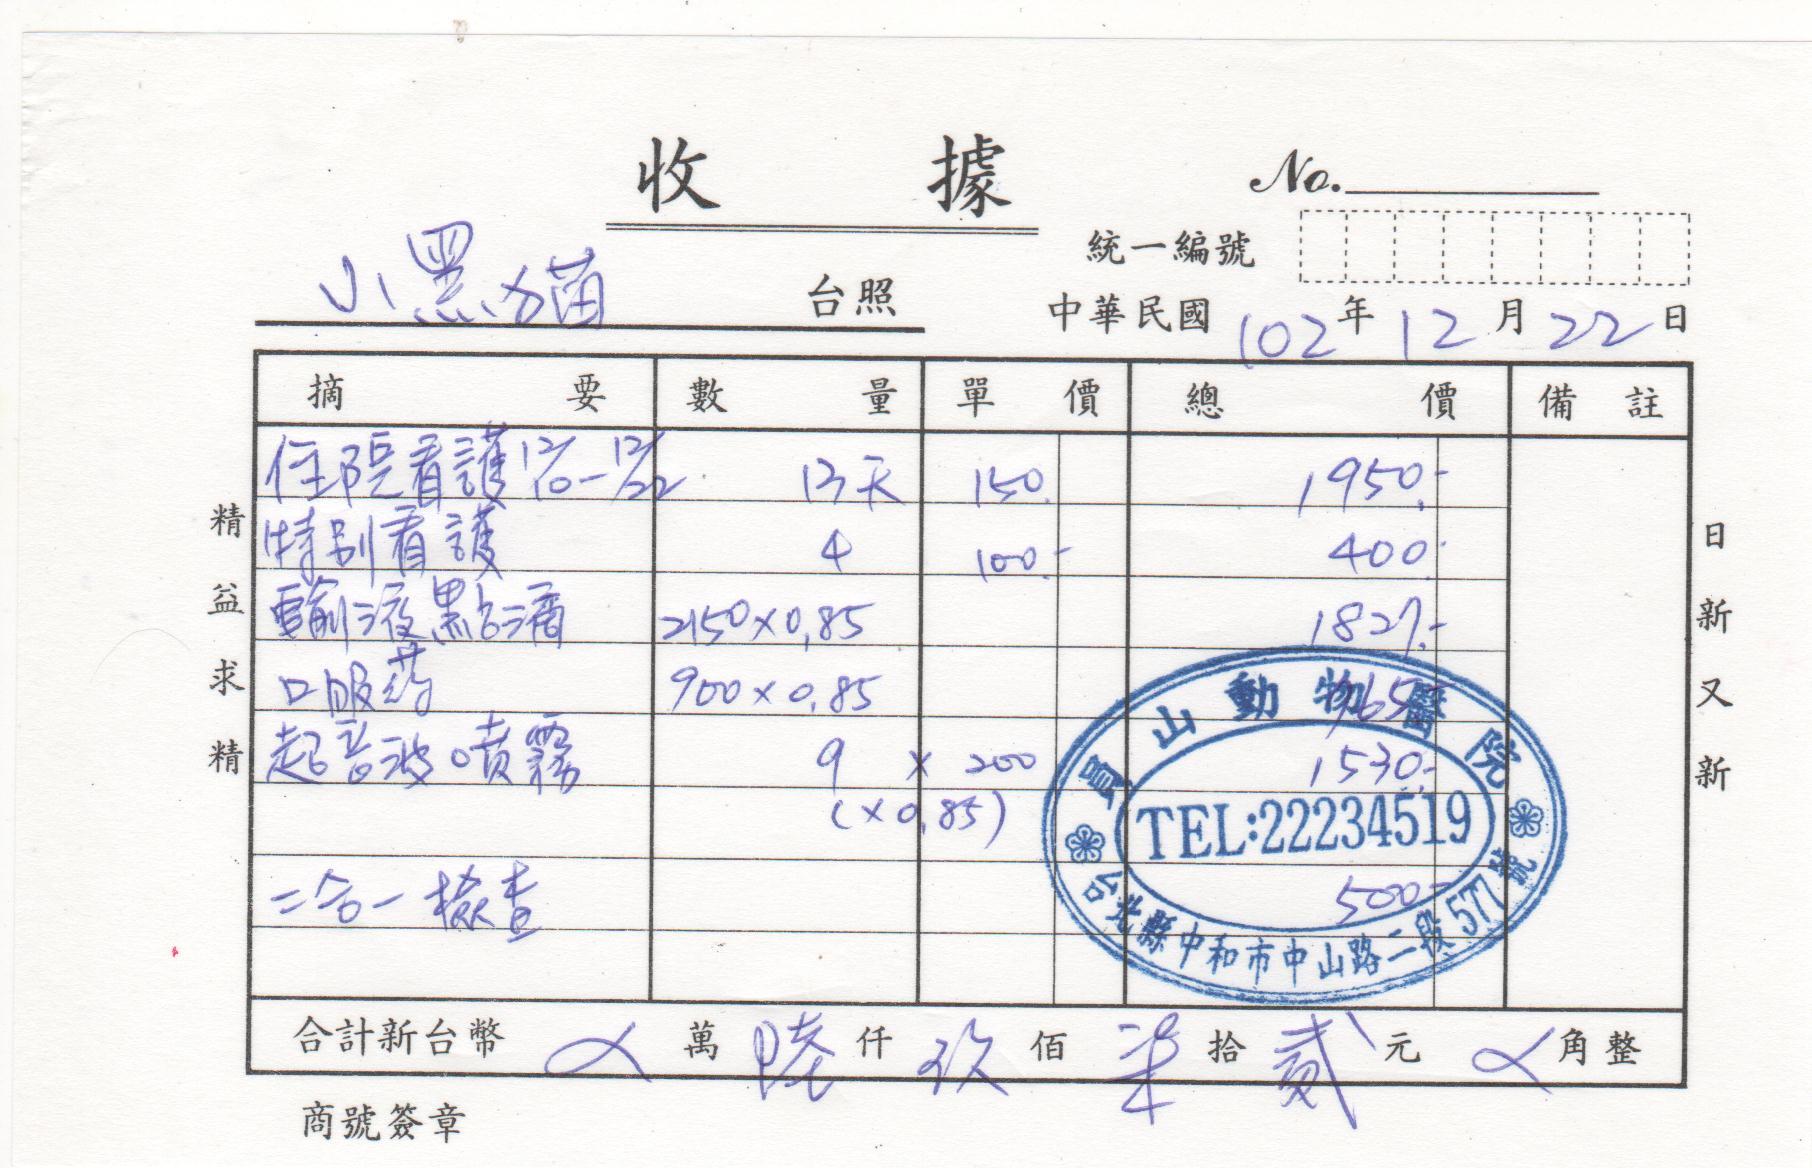 收 據
No.
統一編號
小黑貓 台照
中華民國 102 年 12 月 22 日
摘 要 數 量 單 價 總 價 備 註
住院看護 12/10-12/22 13天 150. 1950.-
特別看護 4 100.- 400.-
輸液點滴 2150×0.85 1827.-
口服药 900×0.85 765
超音波噴霧 9 × 200 1530.-
(×0.85)
二合一檢查 500-
合計新台幣 ㄨ 萬 陸 仟 玖 佰 柒 拾 貳 元 ㄨ 角 整
商號簽章
精益求精
日新又新
員山動物醫院
TEL:22234519
台北縣中和市中山路二段577號